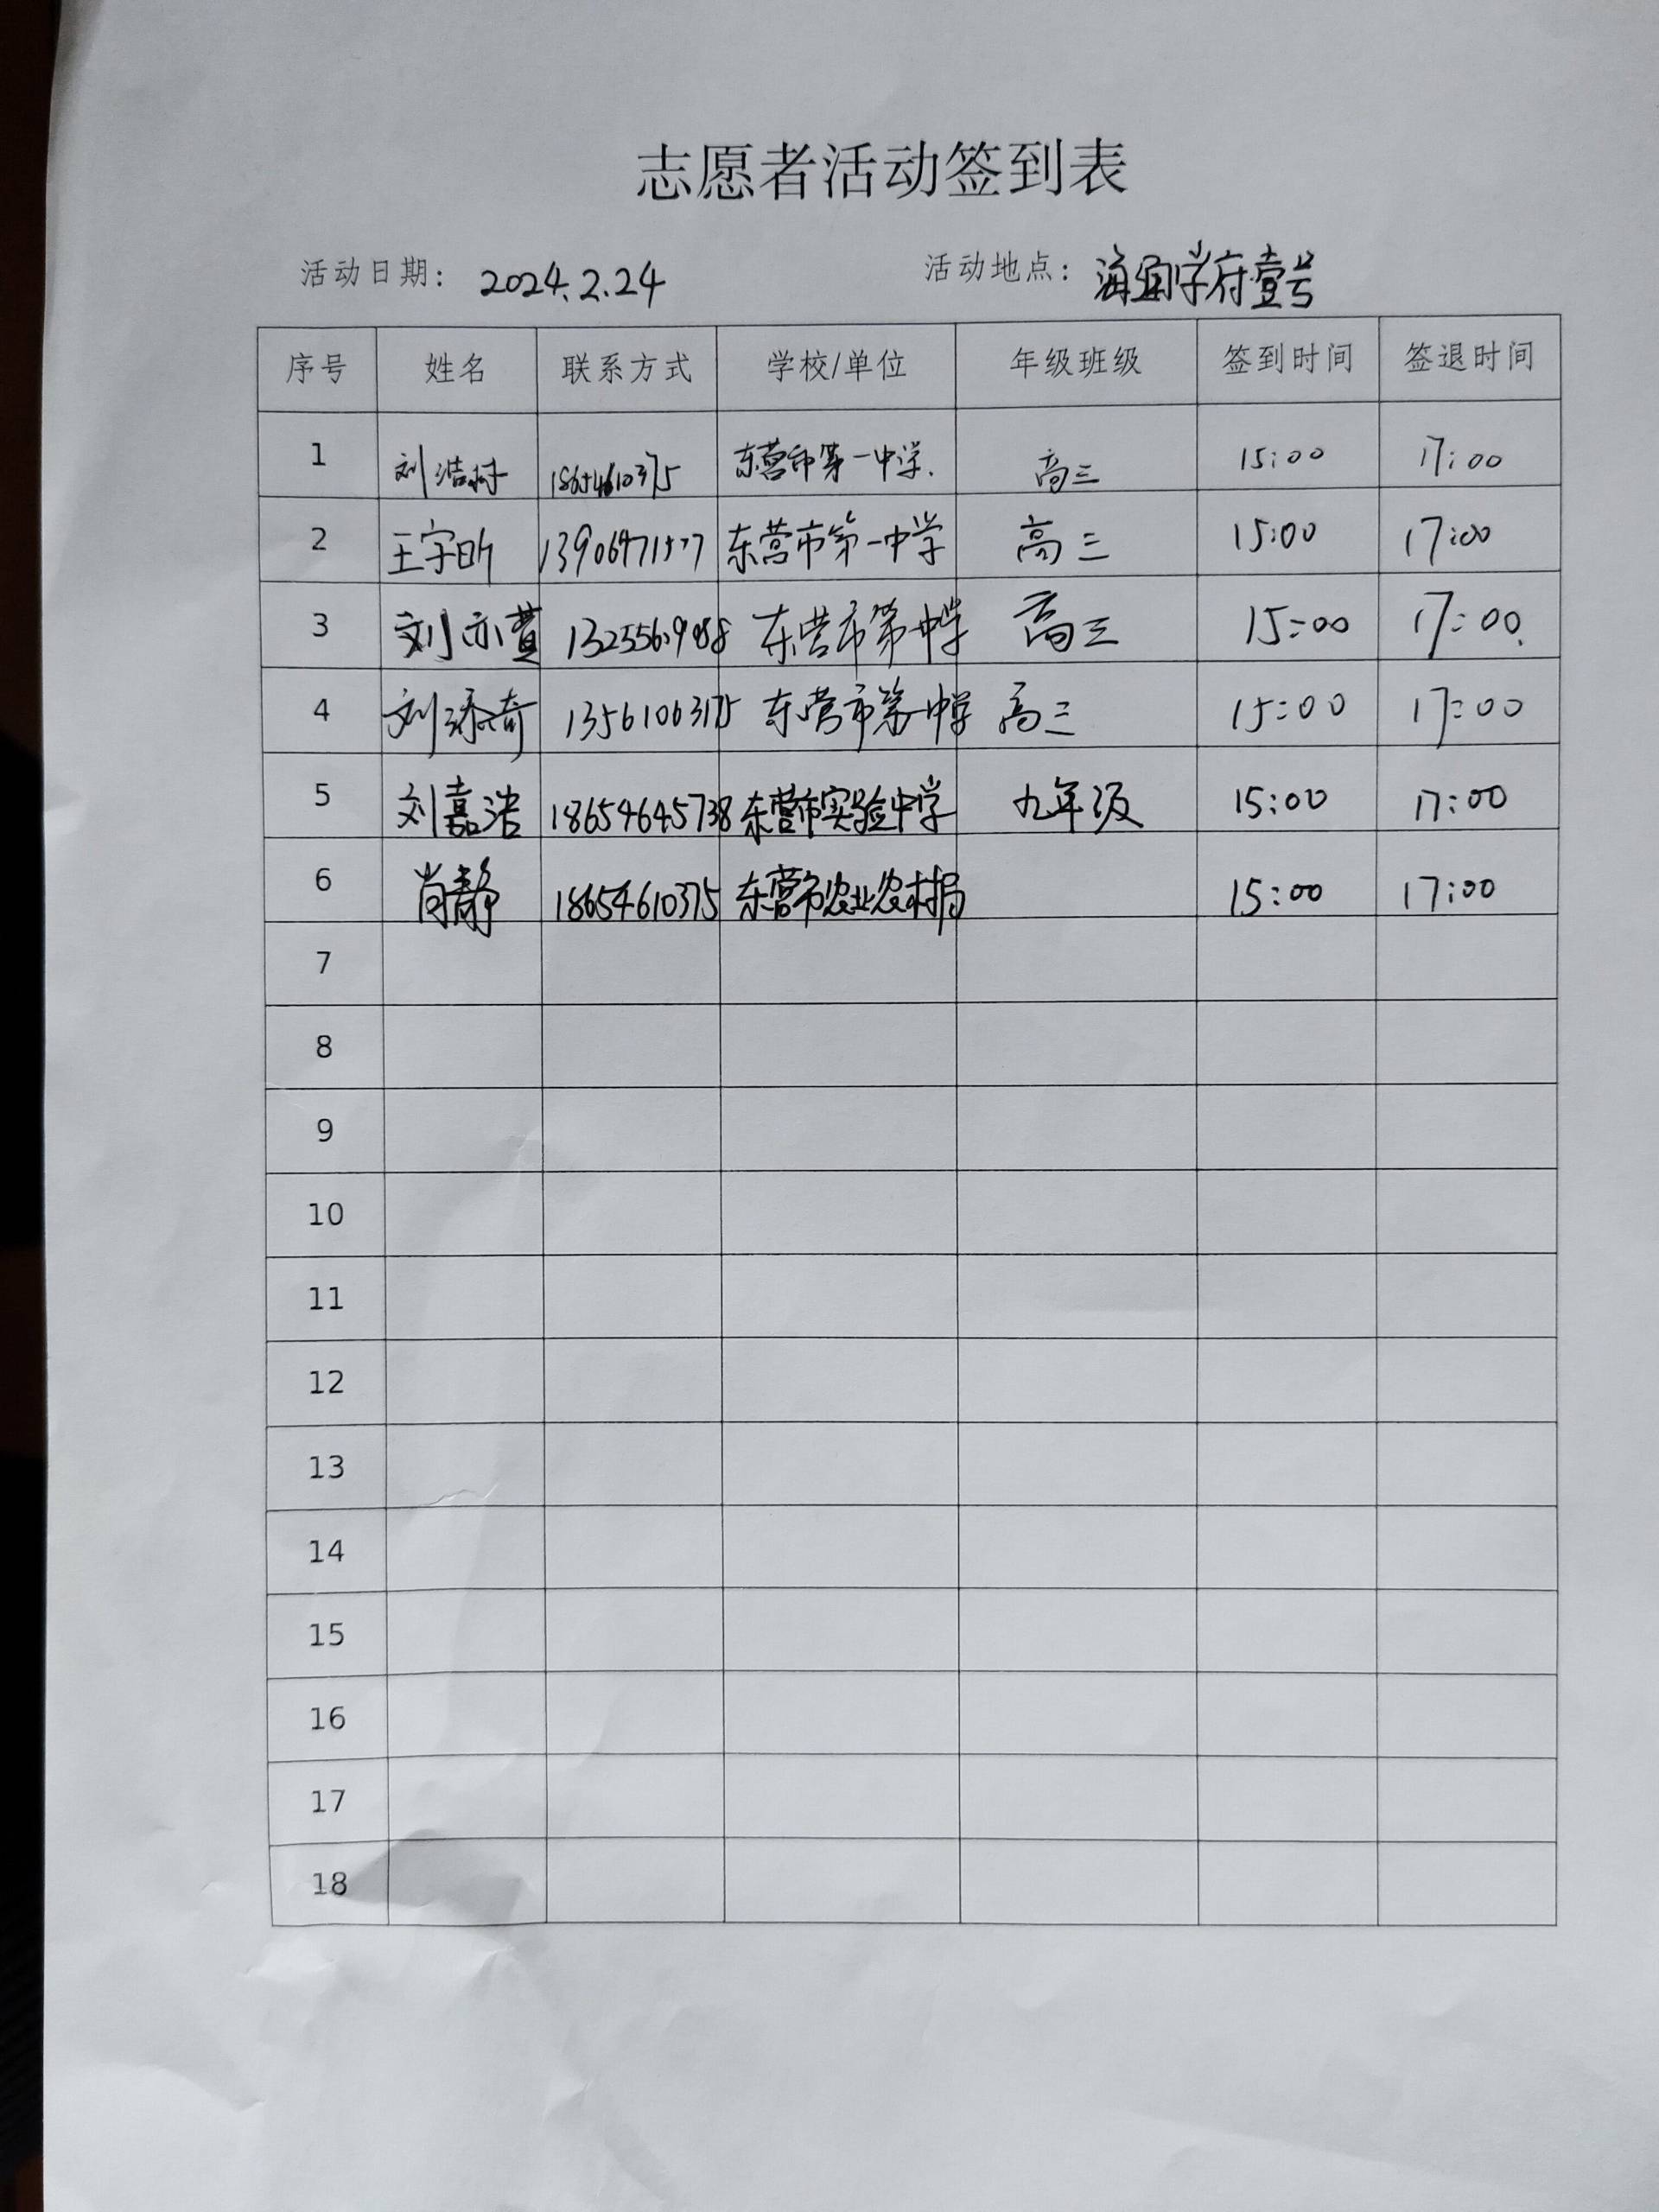 志愿者活动签到表
活动日期: 2024.2.24 活动地点: 海通学府壹号
序号 姓名 联系方式 学校/单位 年级班级 签到时间 签退时间
1 刘浩树 18654610375 东营市第一中学. 高三 15:00 17:00
2 王宇昕 东营市第一中学 高三 15:00 17:00
3 刘亦萱 东营市第一中学 高三 15:00 17:00
4 刘添奇 13561063175 东营市第一中学 高三 15:00 17:00
5 刘嘉浩 18654645738 东营市实验中学 九年级 15:00 17:00
6 肖静 18654610375 东营市农业农村局 15:00 17:00
7
8
9
10
11
12
13
14
15
16
17
18